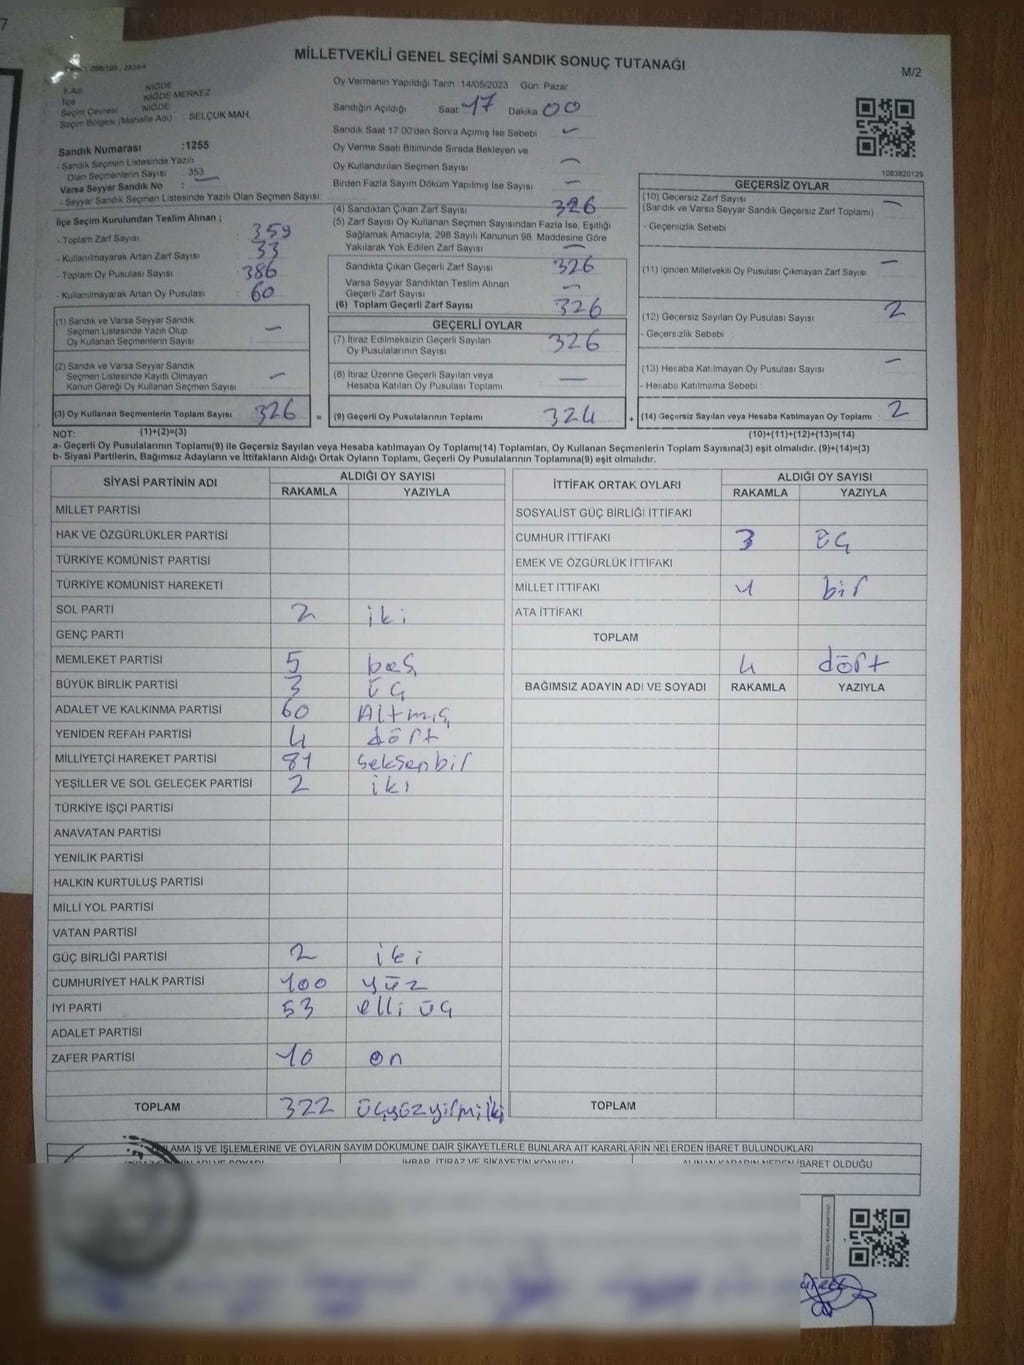 MİLLETVEKİLİ GENEL SEÇİMİ SANDIK SONUÇ TUTANAĞI
M/2
İl Adı NİĞDE
İlçe NİĞDE MERKEZ
Seçim Çevresi NİĞDE
Seçim Bölgesi (Mahalle Adı) SELÇUK MAH.
Sandık Numarası :1255
- Sandık Seçmen Listesinde Yazılı
Olan Seçmenlerin Sayısı 353
Varsa Seyyar Sandık No :
- Seyyar Sandık Seçmen Listesinde Yazılı Olan Seçmen Sayısı
Oy Vermenin Yapıldığı Tarih :14/05/2023 Gün: Pazar
Sandığın Açıldığı Saat 17 Dakika 00
Sandık Saat 17.00'den Sonra Açılmış İse Sebebi -
Oy Verme Saati Bitiminde Sırada Bekleyen ve
Oy Kullandırılan Seçmen Sayısı -
Birden Fazla Sayım Döküm Yapılmış İse Sayısı -
1083820129
İlçe Seçim Kurulundan Teslim Alınan ;
- Toplam Zarf Sayısı : 359
- Kullanılmayarak Artan Zarf Sayısı : 33
- Toplam Oy Pusulası Sayısı : 386
- Kullanılmayarak Artan Oy Pusulası : 60
(1) Sandık ve Varsa Seyyar Sandık
Seçmen Listesinde Yazılı Olup
Oy Kullanan Seçmenlerin Sayısı : -
(2) Sandık ve Varsa Seyyar Sandık
Seçmen Listesinde Kayıtlı Olmayan
Kanun Gereği Oy Kullanan Seçmen Sayısı : -
(3) Oy Kullanan Seçmenlerin Toplam Sayısı 326 =
(4) Sandıktan Çıkan Zarf Sayısı 326
(5) Zarf Sayısı Oy Kullanan Seçmen Sayısından Fazla İse, Eşitliği
Sağlamak Amacıyla, 298 Sayılı Kanunun 98. Maddesine Göre
Yakılarak Yok Edilen Zarf Sayısı -
Sandıkta Çıkan Geçerli Zarf Sayısı 326
Varsa Seyyar Sandıktan Teslim Alınan
Geçerli Zarf Sayısı -
(6) Toplam Geçerli Zarf Sayısı 326
GEÇERLİ OYLAR
(7) İtiraz Edilmeksizin Geçerli Sayılan
Oy Pusulalarının Sayısı 326
(8) İtiraz Üzerine Geçerli Sayılan veya
Hesaba Katılan Oy Pusulası Toplamı -
(9) Geçerli Oy Pusulalarının Toplamı 324 +
GEÇERSİZ OYLAR
(10) Geçersiz Zarf Sayısı
(Sandık ve Varsa Seyyar Sandık Geçersiz Zarf Toplamı) -
- Geçersizlik Sebebi
(11) İçinden Milletvekili Oy Pusulası Çıkmayan Zarf Sayısı -
(12) Geçersiz Sayılan Oy Pusulası Sayısı 2
- Geçersizlik Sebebi
(13) Hesaba Katılmayan Oy Pusulası Sayısı -
- Hesaba Katılmama Sebebi
(14) Geçersiz Sayılan veya Hesaba Katılmayan Oy Toplamı 2
NOT: (1)+(2)=(3) (10)+(11)+(12)+(13)=(14)
a- Geçerli Oy Pusulalarının Toplamı(9) ile Geçersiz Sayılan veya Hesaba katılmayan Oy Toplamı(14) Toplamları, Oy Kullanan Seçmenlerin Toplam Sayısına(3) eşit olmalıdır. (9)+(14)=(3)
b- Siyasi Partilerin, Bağımsız Adayların ve İttifakların Aldığı Ortak Oyların Toplamı, Geçerli Oy Pusulalarının Toplamına(9) eşit olmalıdır.
SİYASİ PARTİNİN ADI ALDIĞI OY SAYISI
RAKAMLA YAZIYLA
MİLLET PARTİSİ
HAK VE ÖZGÜRLÜKLER PARTİSİ
TÜRKİYE KOMÜNİST PARTİSİ
TÜRKİYE KOMÜNİST HAREKETİ
SOL PARTİ 2 iki
GENÇ PARTİ
MEMLEKET PARTİSİ 5 beş
BÜYÜK BİRLİK PARTİSİ 3 üç
ADALET VE KALKINMA PARTİSİ 60 Altmış
YENİDEN REFAH PARTİSİ 4 dört
MİLLİYETÇİ HAREKET PARTİSİ 81 seksenbir
YEŞİLLER VE SOL GELECEK PARTİSİ 2 iki
TÜRKİYE İŞÇİ PARTİSİ
ANAVATAN PARTİSİ
YENİLİK PARTİSİ
HALKIN KURTULUŞ PARTİSİ
MİLLİ YOL PARTİSİ
VATAN PARTİSİ
GÜÇ BİRLİĞİ PARTİSİ 2 iki
CUMHURİYET HALK PARTİSİ 100 yüz
İYİ PARTİ 53 elli üç
ADALET PARTİSİ
ZAFER PARTİSİ 10 on
TOPLAM 322 üçyüzyirmiiki
İTTİFAK ORTAK OYLARI ALDIĞI OY SAYISI
RAKAMLA YAZIYLA
SOSYALİST GÜÇ BİRLİĞİ İTTİFAKI
CUMHUR İTTİFAKI 3 üç
EMEK VE ÖZGÜRLÜK İTTİFAKI
MİLLET İTTİFAKI 1 bir
ATA İTTİFAKI
TOPLAM
4 dört
BAĞIMSIZ ADAYIN ADI VE SOYADI RAKAMLA YAZIYLA
TOPLAM
İŞ VE İŞLEMLERİNE VE OYLARIN SAYIM DÖKÜMÜNE DAİR ŞİKAYETLERLE BUNLARA AİT KARARLARIN NELERDEN İBARET BULUNDUKLARI
İHBAR, İTİRAZ VE ŞİKAYETİN KONUSU ALINAN KARARIN NEDEN İBARET OLDUĞU